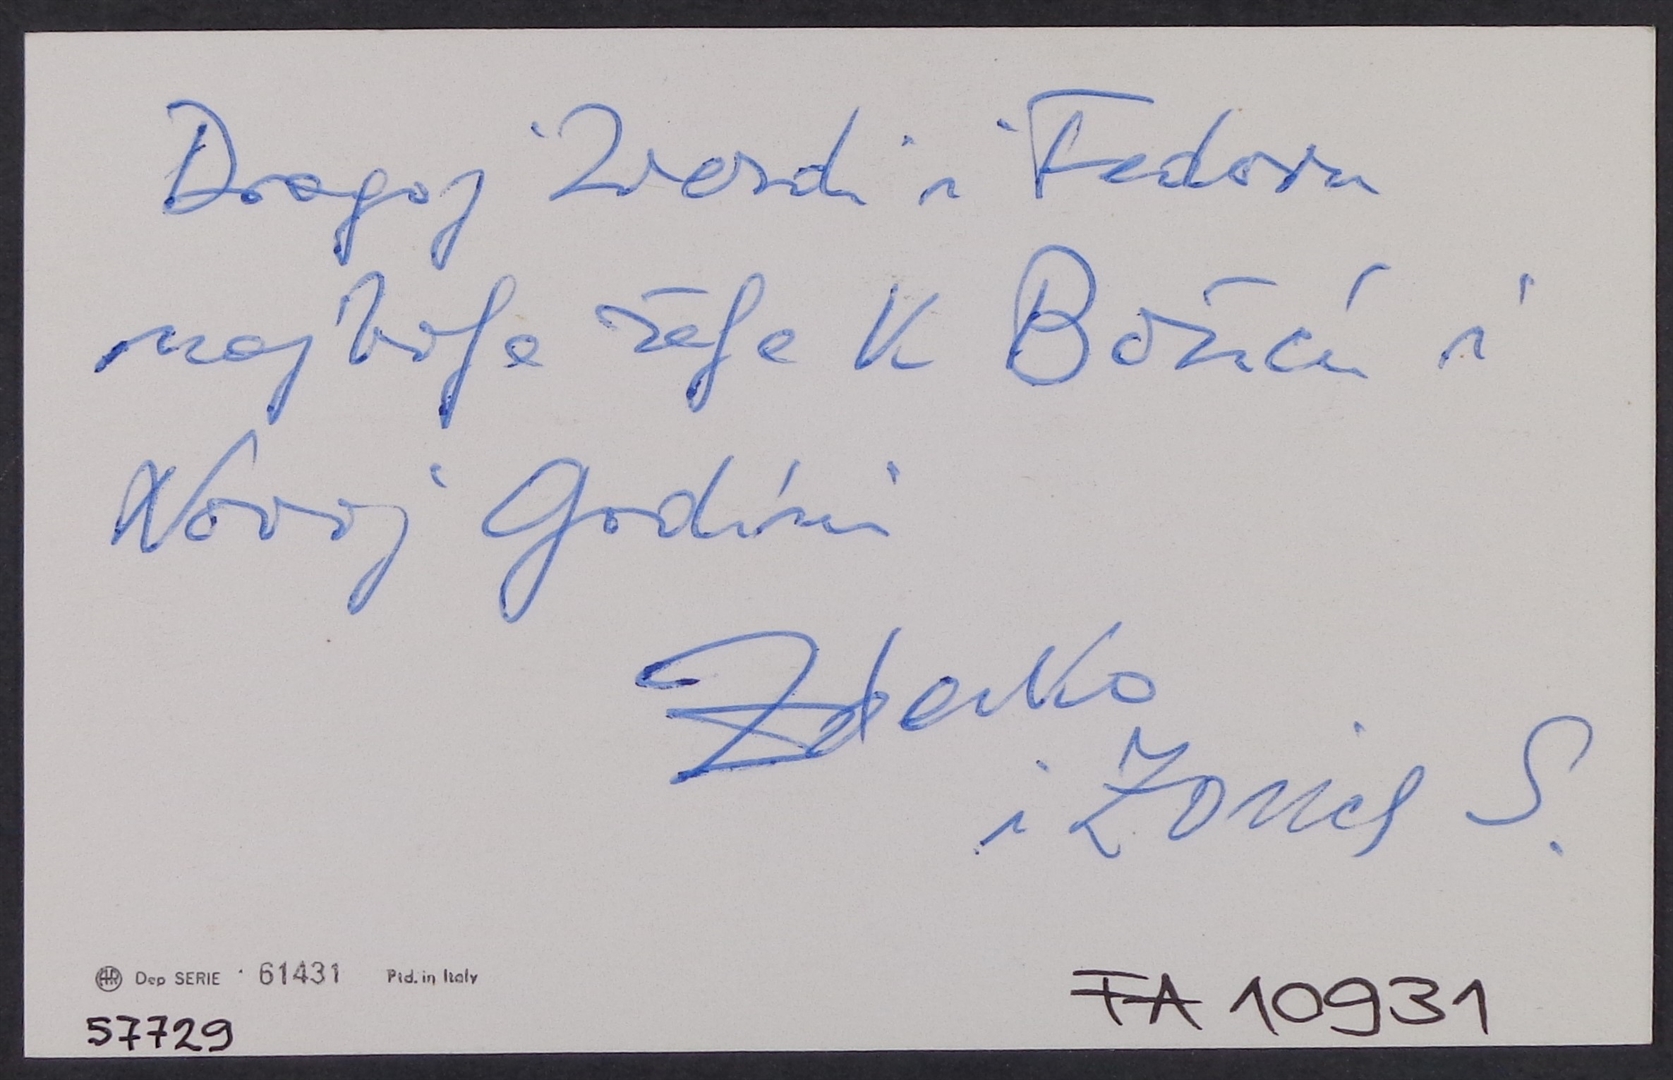 Dragoj Zvezdi i Fedoru
najbolje želje k Božiću i
Novoj Godini
Zdenko
i Zorica S.
Dep SERIE · 61431 Ptd. in Italy
57729
FA 10931